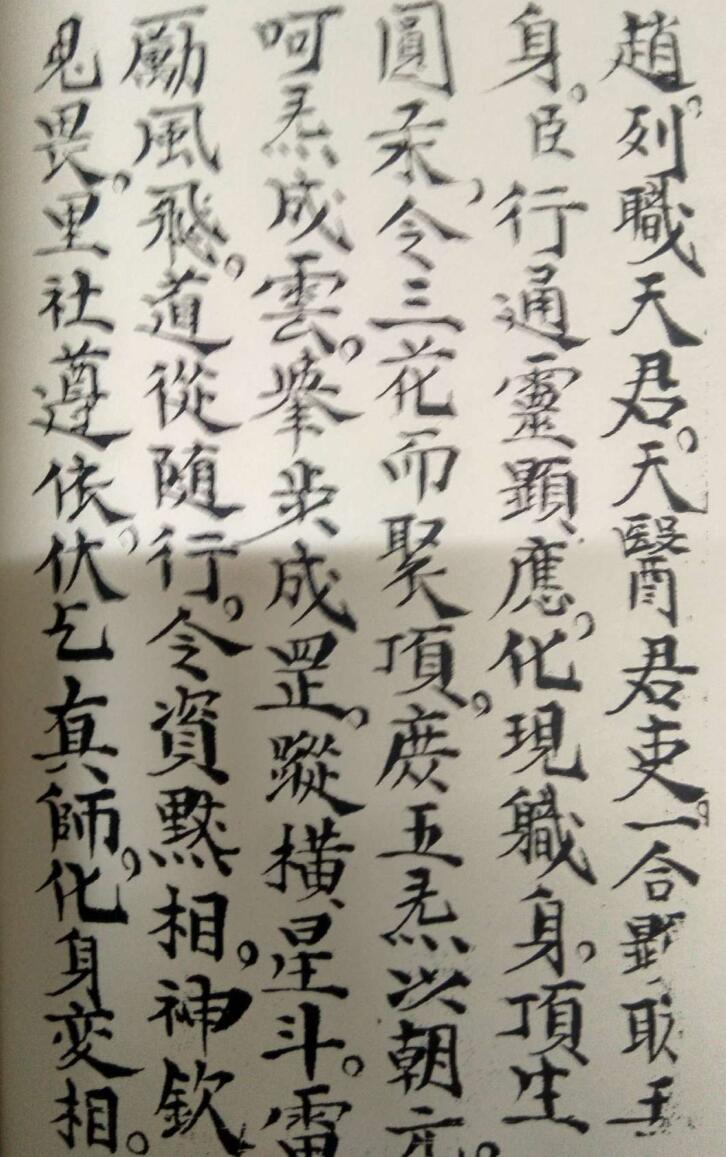 趙。列職天君。天醫君吏。一合顕取王
身。臣行通靈顯應。化現職身。頂生
圓汞。令三花而聚頂。庻五炁以朝元。
呵炁成雲。举步成罡。蹤橫星斗。雷
勵風飛。道從随行。令資黙相。神欽
鬼畏。里社遵依。伏乞真師。化身変相。